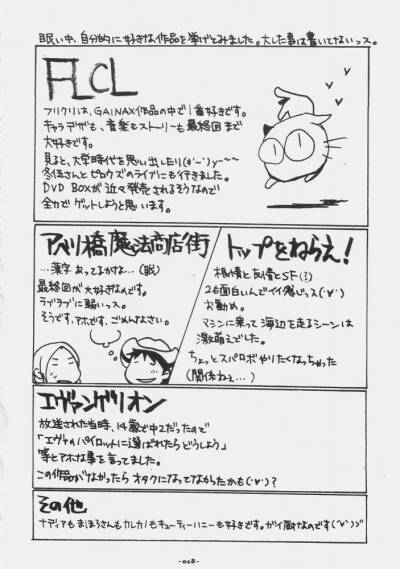 眠い中、自分的に好きな作品を挙げてみました。大した事は書いてないっス。
FLCL
フリクリは、GAINAX作品の中で1番好きです。
キャラデザも、音楽もストーリーも最終回まで
大好きです。
見ると、大学時代を思い出したり(*´ー`)y-~~
冬伍さんとピロウズのライブにも行きました。
DVD BOXが近々発売されるそうなので
全力でゲットしようと思います。
アベノ橋魔法商店街
…漢字あってるかな…(眠)
最終回が大好きなのです。
ラブラブに弱いっス。
そうです、アホです、ごめんなさい。
トップをねらえ!
根性と友情とSF(?)
2も面白いんでイイ感じっス(´∀`)
お勧め。
マシンに乗って海辺を走るシーンは
激萌えでした。
ちょっとスパロボやりたくなっちゃった
(関係ねぇ…)
エヴァンゲリオン
放送された当時、14歳で中2だったので
「エヴァのパイロットに選ばれたらどうしよう」
等とアホな事を言ってました。
この作品がなかったらオタクになってなかったかも(´∀`)?
その他
ナディアもまほろさんもカレカノもキューティーハニーも好きです。ガイ厨なのです(´∀`)ゞ
-028-